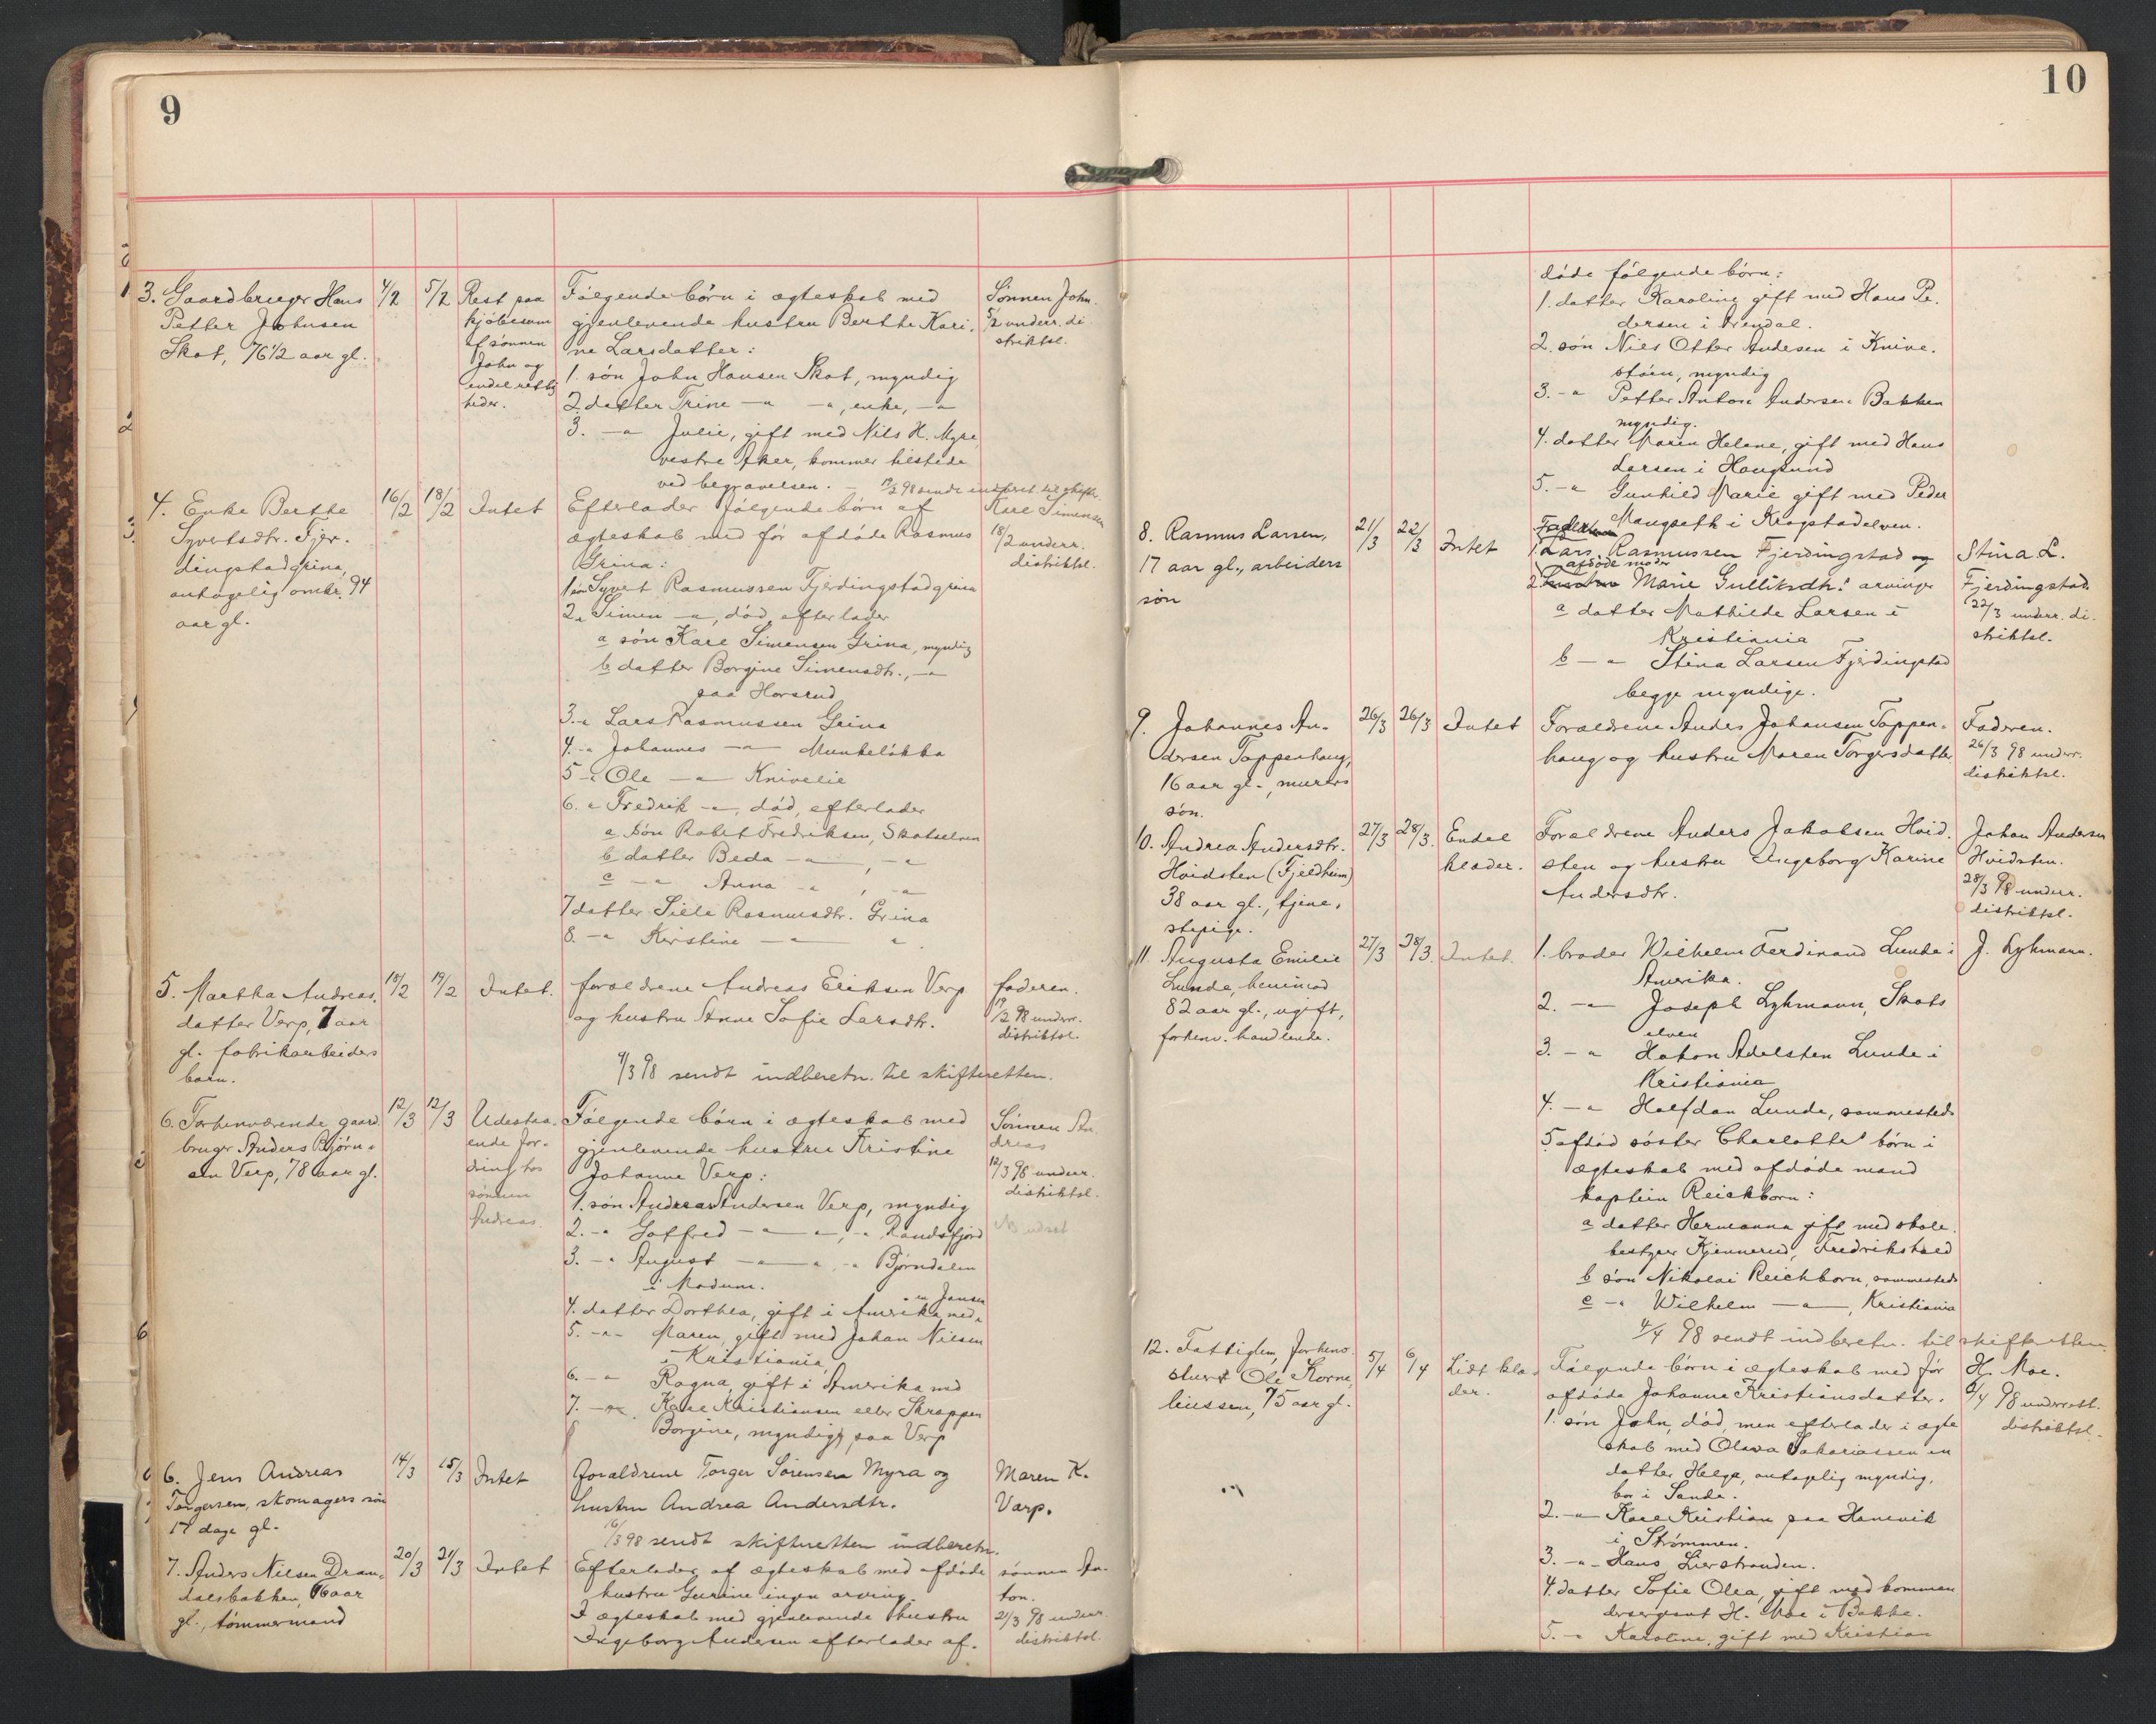 9
3. Gaardbruger Hans
Petter Johnsen
Skot, 76 1/2 aar gl.
4/2
5/2
Rest paa
kjøbesum
af sønnen
John og
endel rettig
heder.
Følgende børn i ægteskab med
gjenlevende hustru Berthe Kari-
ne Larsdatter:
1. søn John Hansen Skot, myndig
2. datter Trine —"— —", enke, —"
3. —" Julie, gift med Nils H. Myre
vestre Aker, kommer tilstede
ved begravelsen. —
Sønnen John.
5/2 underr. di
striktsl.
98 sendt indberet. til skiftr.
4. Enke Berthe
Syvertsdtr. Fjer-
dingstadgrina,
antagelig omkr. 94
aar gl.
16/2
18/2
Intet
Efterlader følgende børn af
ægteskab med før afdøde Rasmus
Grina:
1 søn Syvert Rasmussen Fjerdingstadgrina
2 " Simen —", død, efterlader
a søn Karl Simensen Grina, myndig
b datter Borgine Simensdtr., —"
paa Horsrud
3. " Lars Rasmussen Grina
4. " Johannes —"— Munkeløkka
5 " Ole —"— Knivelie
6. " Fredrik —", død, efterlader
a søn Robet Fredriksen, Skotselven
b datter Beda —"—, —"
c —" Anna —", —"
7 datter Sille Rasmusdtr. Grina
8. —" Kirstine —"— "
Karl Simensen
18/2 underr.
distriktsl.
5. Martha Andreas-
datter Verp, 7 aar
gl. fabrikarbeiders
barn.
18/2
19/2
Intet.
forældrene Andreas Eriksen Verp
og hustru Anne Sofie Larsdtr.
faderen.
19/2 98 underr.
distriktsl.
4/3 98 sendt indberetn. til skifteretten.
6. Forhenværende gaard
bruger Anders Bjørn-
sen Verp, 78 aar gl.
12/3
12/3
Udestaa-
ende for-
dring hos
sønnen
Andreas.
Følgende børn i ægteskab med
gjenlevende hustru Kristine
Johanne Verp:
1. søn Andreas Andersen Verp, myndig
2. —" Goffred —"— —", —" Randsfjord
3. —" August —"— ", —" Bjørndalen
i Modum.
4. datter Dorthea, gift i Amerika med en Jansen
5. —"— Maren, gift med Johan Nilsen
i Kristiania,
6. —" Ragna, gift i Amerika med
7. —" Karl Kristiansen eller Skroppen
Borgine, myndig, paa Verp
Sønnen An-
dreas
12/3 98 underr.
distriktsl.
6. Jens Andreas
Torgersen, skomagers søn
17 dage gl.
14/3
15/3
Intet
forældrene Torger Sørensen Myra og
hustru Andrea Andersdtr.
Maren K.
Værp.
16/3 98 sendt skifteretten indberetn.
7. Anders Nilsen Dram-
dalsbakken, 76 aar
gl., tømmermand
20/3
21/3
Intet
Efterlader af ægteskab med afdøde
hustru Gurine ingen arving.
I ægteskab med gjenlevende hustru
Ingeborg Andersen efterlader af-
sønnen An-
ton.
21/3 98 underr.
distriktsl.
10
døde følgende børn:
1. datter Karoline gift med Hans Pe-
dersen i Arendal.
2. søn Niels Otter Andesen i Knive-
støen, myndig
3. —" Petter Anton Andersen Bakken
myndig.
4. datter Maren Helene, gift med Hans
Larsen i Hougsund
5. —" Gunhild Marie gift med Peder
Mangseth i Krogstadelven.
8. Rasmus Larsen,
17 aar gl., arbeiders
søn
21/3
22/3
Intet
1. Lars Rasmussen Fjerdingstad og
2. afdøde moder Marie Gulliksdtr.' arvinger
a datter Mathilde Larsen i
Kristiania
b —" Stina Larsen Fjerdingstad
begge myndige.
Stina L.
Fjerdingstad.
22/3 underr. di-
striktsl.
9. Johannes An-
dersen Toppenhaug,
16 aar gl., murers
søn.
26/3
26/3
Intet
Forældrene Anders Johansen Toppen-
haug og hustru Maren Torgersdatter
Faderen.
26/3 98 underr.
distriktsl.
10. Andrea Andersdtr.
Hvidsten (Fjeldheim)
38 aar gl., tjene-
stepige.
27/3
28/3.
Endel
klæder.
Forældrene Anders Jakobsen Hvid-
sten og hustru Ingeborg Karine
Andersdtr.
Johan Andersen
Hvidsten.
28/3 98 underr.
distriktsl.
11. Augusta Emilie
Lunde, henimod
82 aar gl., ugift,
forhenv. handlende.
27/3
28/3.
Intet.
1. broder Wilhelm Ferdinand Lunde i
Amerika.
2. —" Joseph Lykmann, Skots
elven
3. —" Hakon Adelsten Lunde i
Kristiania
4. —" Halfdan Lunde, sammesteds
5 afdød søster Charlotte' børn i
ægteskab med afdøde mand
kaptein Reichborn:
a datter Hermanna gift med skole-
bestyrer Kjennerud, Fredrikshald
b søn Nikolai Reichborn, sammesteds
c —" Wilhelm —"—, Kristiania
J. Lykmann.
4/4 98 sendt indberetn. til skifteretten.
12. Fattiglem, forhenv.
Ole Korne-
liussen, 75 aar gl.
5/4
6/4
Lidt klæ-
der.
Følgende børn i ægteskab med før
afdøde Johanne Kristiansdatter.
1. søn John, død, men efterlader i ægte
skab med Olava Sakariassen en
datter Helga, antagelig myndig,
bor i Sande.
2. —"— Karl Kristian paa Hanevik
i Strømmen.
3. —"— Hans, Lierstranden.
4. datter Sofie Olea, gift med kommen
dersergeant H. Moe i Bakke.
5. —" Karoline, gift med Kristian
H. Moe.
6/4 98 underrett.
distriktsl.